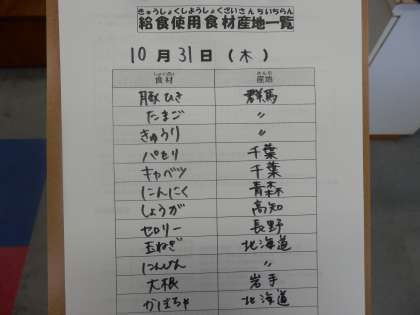 きゅうしょくしようしょくざいさんちいちらん
給食使用食材産地一覧
10月31日(木)
しょくざい さんち
食材 産地
豚ひき 群馬
たまご 〃
きゅうり 〃
パセリ 千葉
キャベツ 千葉
にんにく 青森
しょうが 高知
セロリー 長野
玉ねぎ 北海道
にんじん 〃
大根 岩手
かぼちゃ 北海道